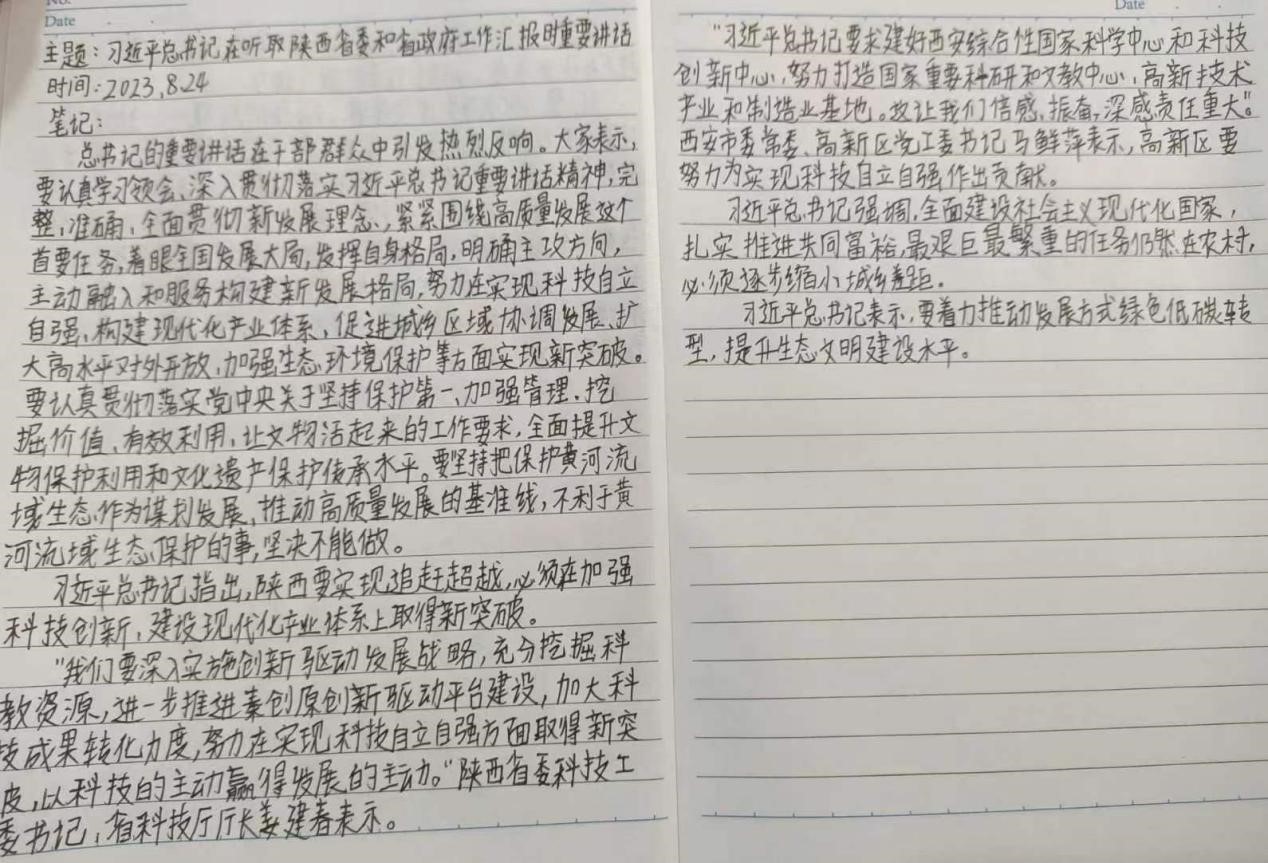 No.
Date
主题：习近平总书记在听取陕西省委和省政府工作汇报时重要讲话
时间：2023.8.24
笔记：
总书记的重要讲话在干部群众中引发热烈反响。大家表示，
要认真学习领会、深入贯彻落实习近平总书记重要讲话精神，完
整、准确、全面贯彻新发展理念、紧紧围绕高质量发展这个
首要任务，着眼全国发展大局，发挥自身格局，明确主攻方向，
主动融入和服务构建新发展格局，努力在实现科技自立
自强，构建现代化产业体系，促进城乡区域协调发展、扩
大高水平对外开放，加强生态环境保护等方面实现新突破。
要认真贯彻落实党中央关于坚持保护第一、加强管理、挖
掘价值、有效利用、让文物活起来的工作要求，全面提升文
物保护利用和文化遗产保护传承水平。要坚持把保护黄河流
域生态作为谋划发展、推动高质量发展的基准线，不利于黄
河流域生态保护的事，坚决不能做。
习近平总书记指出，陕西要实现追赶超越，必须在加强
科技创新、建设现代化产业体系上取得新突破。
"我们要深入实施创新驱动发展战略，充分挖掘科
教资源，进一步推进秦创原创新驱动平台建设，加大科
技成果转化力度，努力在实现科技自立自强方面取得新突
破，以科技的主动赢得发展的主动。"陕西省委科技工
委书记，省科技厅厅长姜建春表示。
Date
"习近平总书记要求建好西安综合性国家科学中心和科技
创新中心，努力打造国家重要科研和文教中心，高新技术
产业和制造业基地。这让我们倍感振奋，深感责任重大"。
西安市委常委、高新区党工委书记马鲜萍表示，高新区要
努力为实现科技自立自强作出贡献。
习近平总书记强调，全面建设社会主义现代化国家，
扎实推进共同富裕，最艰巨最繁重的任务仍然在农村，
必须逐步缩小城乡差距。
习近平总书记表示，要着力推动发展方式绿色低碳转
型，提升生态文明建设水平。